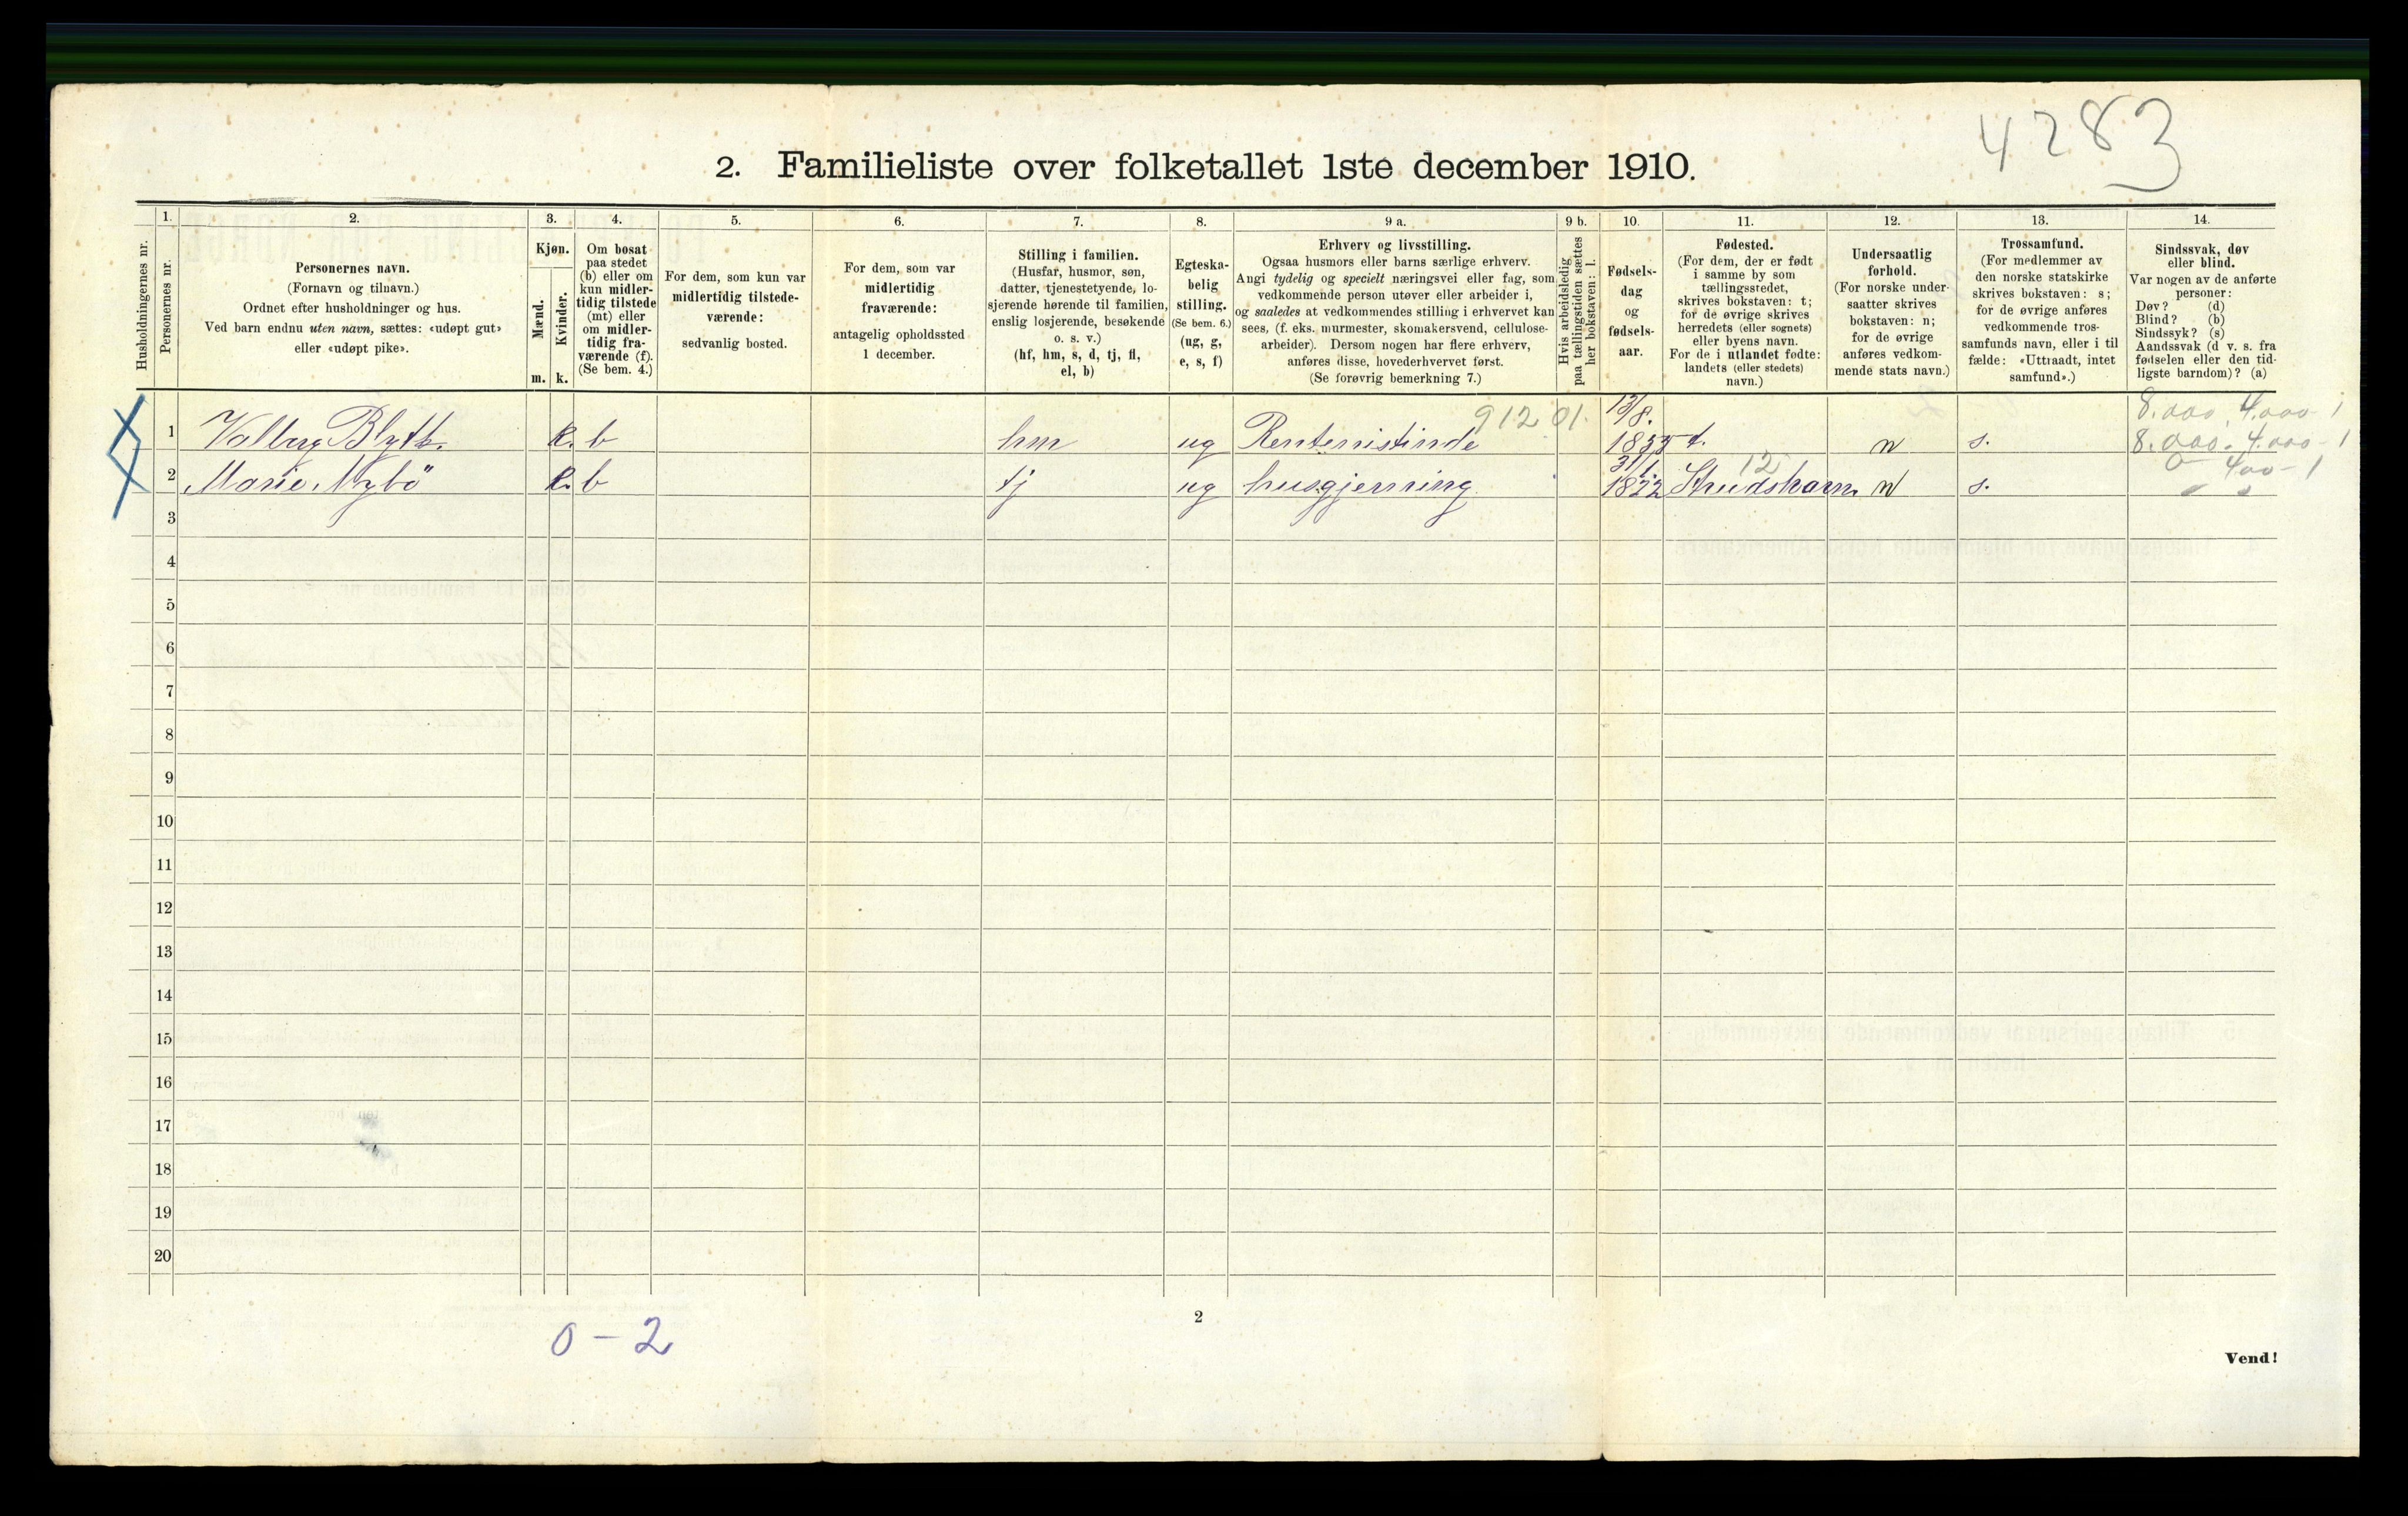 4283
2. Familieliste over folketallet 1ste december 1910.
Husholdningernes nr.
1.
Personernes nr.
2.
Personernes navn.
(Fornavn og tilnavn.)
Ordnet efter husholdninger og hus.
Ved barn endnu uten navn, sættes: «udøpt gut»
eller «udøpt pike».
3.
Kjøn.
Mænd.
Kvinder.
m. k.
4.
Om bosat
paa stedet
(b) eller om
kun midler-
tidig tilstede
(mt) eller
om midler-
tidig fra-
værende (f).
(Se bem. 4.)
5.
For dem, som kun var
midlertidig tilstede-
værende:
sedvanlig bosted.
6.
For dem, som var
midlertidig
fraværende:
antagelig opholdssted
1 december.
7.
Stilling i familien.
(Husfar, husmor, søn,
datter, tjenestetyende, lo-
sjerende hørende til familien,
enslig losjerende, besøkende
o. s. v.)
(hf, hm, s, d, tj, fl,
el, b)
8.
Egteska-
belig
stilling.
(Se bem. 6.)
(ug, g,
e, s, f)
9 a.
Erhverv og livsstilling.
Ogsaa husmors eller barns særlige erhverv.
Angi tydelig og specielt næringsvei eller fag, som
vedkommende person utøver eller arbeider i,
og saaledes at vedkommendes stilling i erhvervet kan
sees, (f. eks. murmester, skomakersvend, cellulose-
arbeider). Dersom nogen har flere erhverv,
anføres disse, hovederhvervet først.
(Se forøvrig bemerkning 7.)
9 b.
Hvis arbeidsledig
paa tællingstiden sættes
her bokstaven: l.
10.
Fødsels-
dag
og
fødsels-
aar.
11.
Fødested.
(For dem, der er født
i samme by som
tællingsstedet,
skrives bokstaven: t;
for de øvrige skrives
herredets (eller sognets)
eller byens navn.
For de i utlandet fødte:
landets (eller stedets)
navn.)
12.
Undersaatlig
forhold.
(For norske under-
saatter skrives
bokstaven: n;
for de øvrige
anføres vedkom-
mende stats navn.)
13.
Trossamfund.
(For medlemmer av
den norske statskirke
skrives bokstaven: s;
for de øvrige anføres
vedkommende tros-
samfunds navn, eller i til
fælde: «Uttraadt, intet
samfund».)
14.
Sindssvak, døv
eller blind.
Var nogen av de anførte
personer:
Døv? (d)
Blind? (b)
Sindssyk? (s)
Aandssvak (d v. s. fra
fødselen eller den tid-
ligste barndom)? (a)
8.000. 4.000-1
91201. 13/8.
1 Valborg Blyth. k. b hm ug Rentenistinde t. n s. 8.000. 4.000-1
31/1. 12 0 400-1
2 Marie Nybö k. b tj ug husgjerning n s.
3
4
5
6
7
8
9
10
11
12
13
14
15
16
17
18
19
20
2
0-2
Vend!